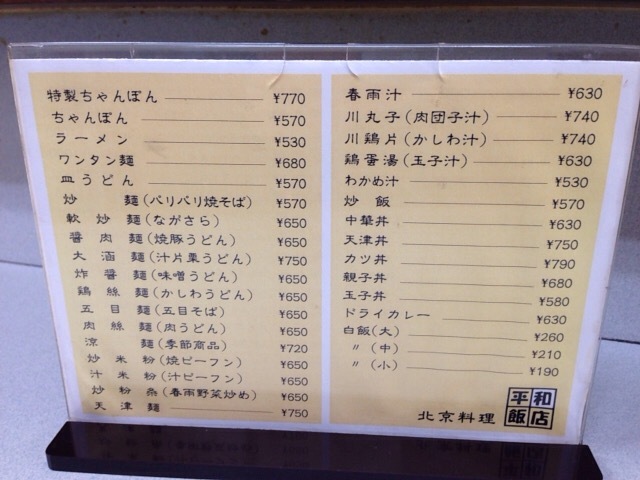 特製ちゃんぽん ¥770
ちゃんぽん ¥570
ラーメン ¥530
ワンタン麺 ¥680
皿うどん ¥570
炒麺(バリバリ焼そば) ¥570
軟炒麺(ながさら) ¥650
醤肉麺(焼豚うどん) ¥650
大滷麺(汁片栗うどん) ¥750
炸醤麺(味噌うどん) ¥650
鶏絲麺(かしわうどん) ¥650
五目麺(五目そば) ¥650
肉絲麺(肉うどん) ¥650
涼麺(季節商品) ¥720
炒米粉(焼ビーフン) ¥650
汁米粉(汁ビーフン) ¥650
炒粉条(春雨野菜炒め) ¥650
天津麺 ¥750
春雨汁 ¥630
川丸子(肉団子汁) ¥740
川鶏片(かしわ汁) ¥740
鶏蛋湯(玉子汁) ¥630
わかめ汁 ¥530
炒飯 ¥570
中華丼 ¥630
天津丼 ¥750
カツ丼 ¥790
親子丼 ¥680
玉子丼 ¥580
ドライカレー ¥630
白飯(大) ¥260
〃(中) ¥210
〃(小) ¥190
北京料理 平和飯店